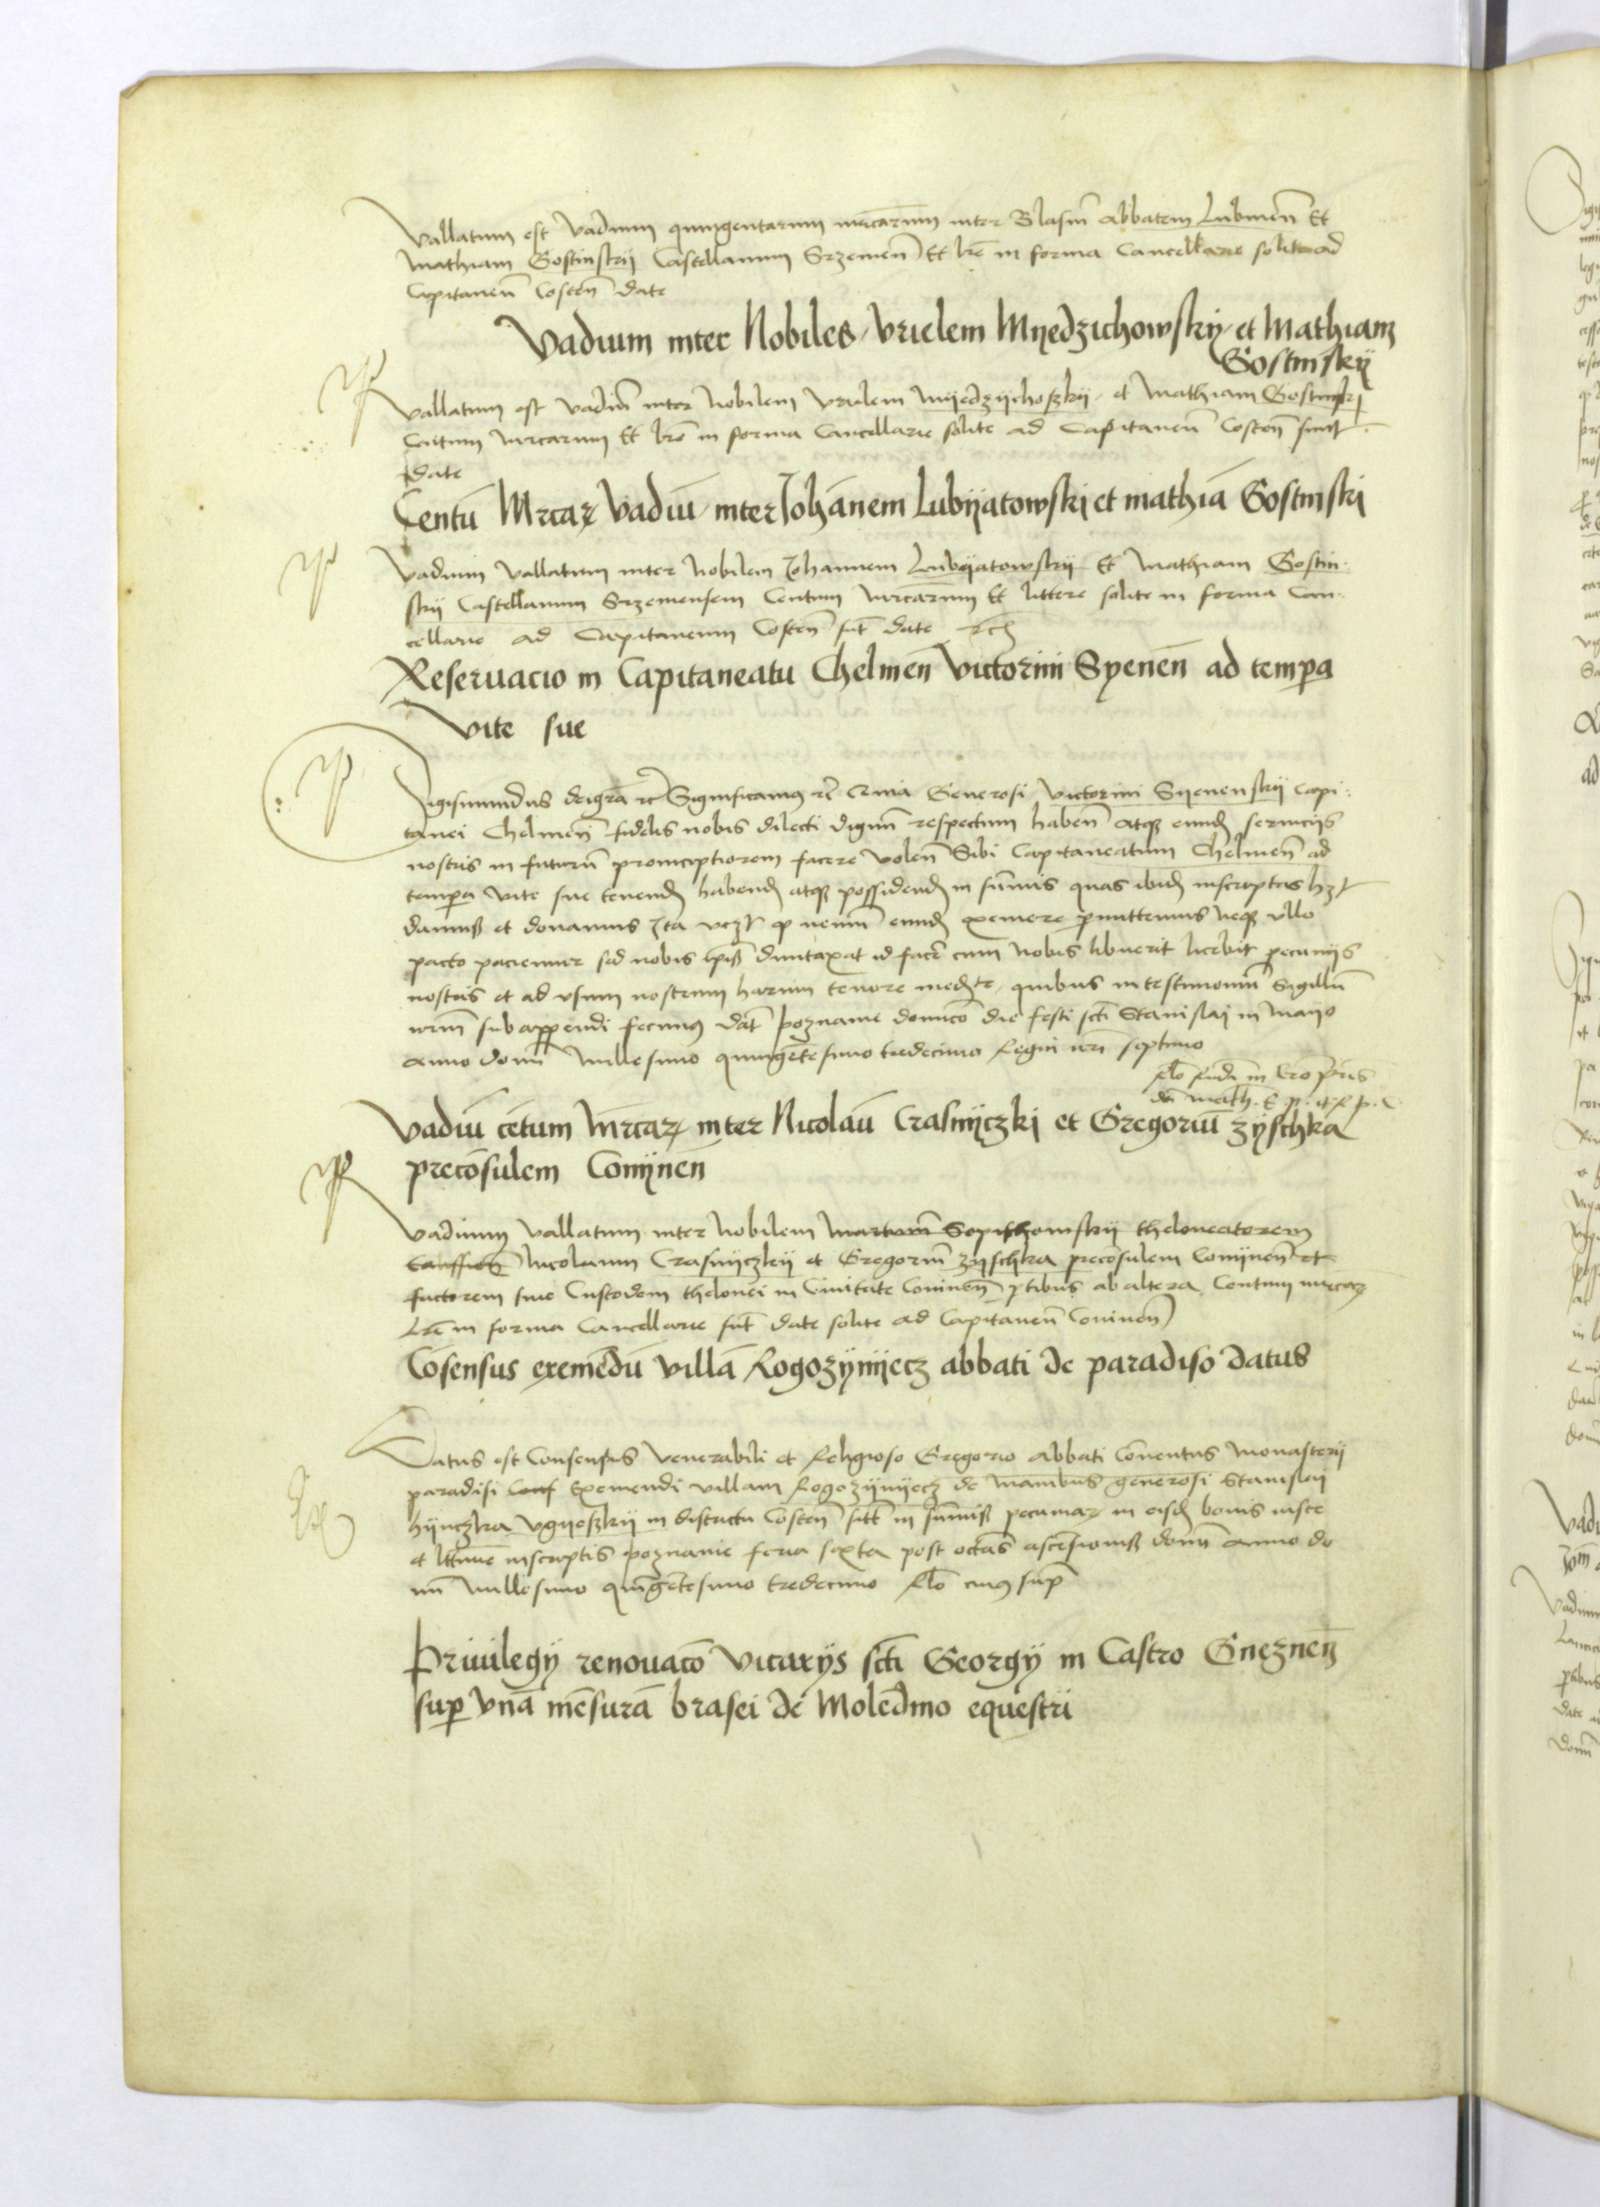 Vallatum est vadium quingentarum marcarum inter Blasiū abbatem Lubinen̄ Et
Mathiam Gostinskij Castellanum Srzemen̄ Et lr̄e in forma Cancellarie solite ad
Capitaneū Costen̄ date
Vadium inter Nobiles Vrielem Myedzichowskij et Mathiam
Gostinskij
Vallatum est vadiū inter Nobilem Vrielem Myedzijchoszkij et Mathiam Gostinskj
Centum mrcarum Et lr̄e in forma Cancellarie solite ad Capitaneū Costen̄ sunt
date
Centū Mrcaꝝ vadiū inter Johānem Lubijatowski et mathiā Gostinski
Vadium vallatum inter Nobilem Johannem Lubijatowskij Et Mathiam Gostin-
skij Castellanum Srzemensem Centum mrcarum Et littere solite in forma Can-
cellarie ad Capitaneum Costen̄ sūt date
Reseruacio in Capitaneatu Chelmen̄ Victorini Syenen̄ ad tempa
Vite sue
Sigismundus dei gr̄a ꝛc Significamus ꝛc̄ Generosi Victorini Sijenenskij Capi-
tanei Chelmen̄ fidelis nobis dilecti dignū respectum haben̄ atqꝫ eundē seruicijs
nostris in futurū promcptiorem facere volen̄ Sibi Capitaneatum Chelmen̄ ad
tempa vite sue tenendū habendū atqꝫ possidendū in sūmis quas ibidē inscriptas hꝫ
damus et donamus Ita vcꝫ ꝙ neminē eundē exemere pmittemus neqꝫ vllo
pacto paciemur sed nobis ipis duntaxat id facē cum nobis libuerit licebit pecunijs
nostris et ad vsum nostrum harum tenore mediante quibus in testimoniū Sigillū
nr̄m subappendi fecimus dat̄ poznanie dominico die festi scti Stanislaj in Mayo
Anno domī Millesimo quingētesimo tredecimo Regni nr̄i septimo
Vadiū cētum mrcaꝝ inter Nicolaū Crasnijczkj et Gregoriū Zijschka
precōsulem Conijnen̄
Vadium vallatum inter Nobilem Martinū theloneatorem
Nicolaum Crasnijczkij et Gregoriū Zijschka precōsulem Conijnen̄ et
factorem siue Custodem thelonei in Ciuitate Coninen̄ ꝑtibus ab altera Centum mrcaꝝ
Lr̄e in forma Cancellarie sūt date solite ad Capitaneū Coninen̄
Cōsensus exemēdū villā Rogozijnijecz abbati de paradiso datus
Datus est Consensus venerabili et Religioso Gregorio abbati Conuentus Monasterij
paradisi Exemendi villam Rogozijnijecz de manibus generosi Stanislaj
hijnczka Vgijeszkij in districtu Costen̄ sitā in sūmis pecuniaꝝ in eisdē bonis iuste
et lttime inscriptis Poznanie feria sexta post octās ascēsionis domī anno do
mī Millesimo quingētesimo tredecimo Rlō cuius sup̄
Priuilegij renouacō vicarijs scti Georgij in Castro Gneznen̄
sup vnā mēsurā brasei de Molēdino equestri